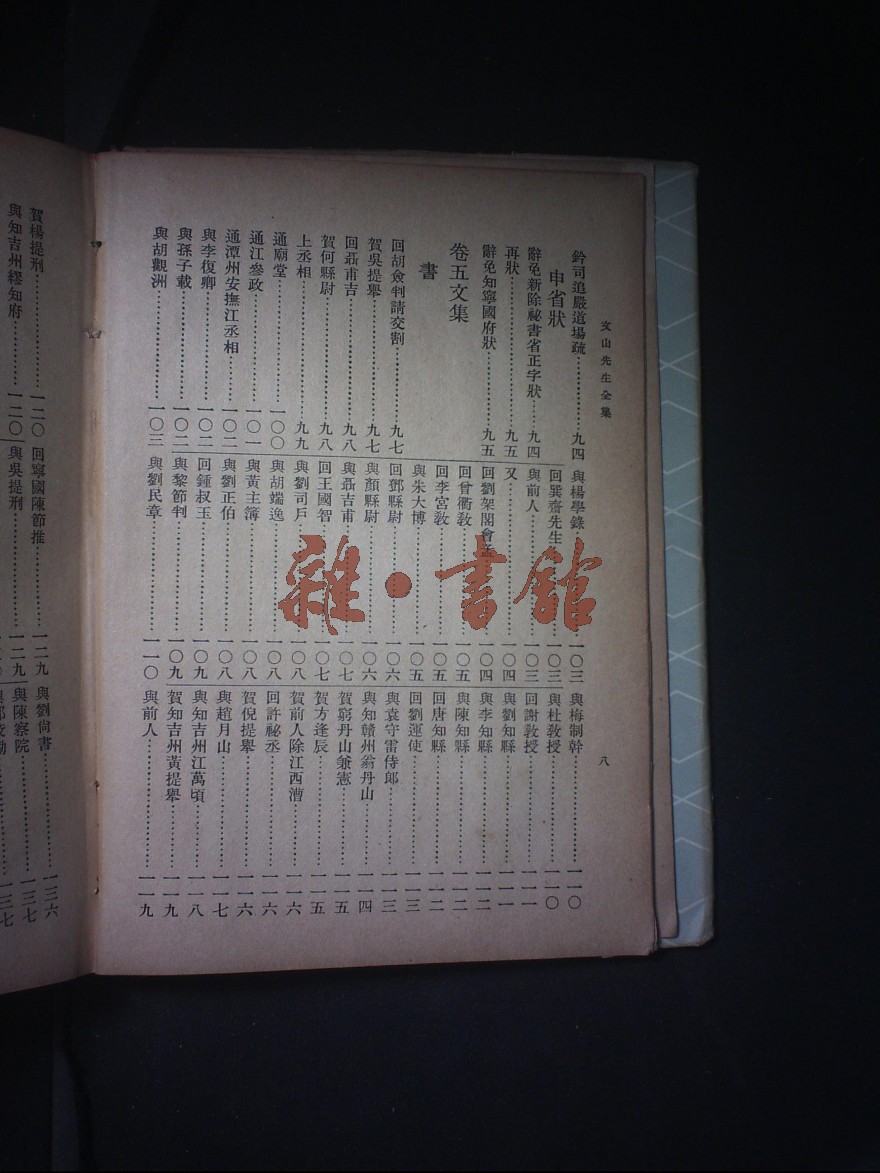 文山先生全集
八
鈐司追嚴道場疏……九四
申省狀
辭免新除祕書省正字狀……九四
再狀……九五
辭免知寧國府狀……九五
卷五文集
書
回胡僉判請交割……九七
賀吳提舉……九七
回聶甫吉……九八
賀何縣尉……九八
上丞相……九九
通廟堂……一〇〇
通江參政……一〇一
通潭州安撫江丞相……一〇二
與李復卿……一〇二
與孫子載……一〇二
與胡觀洲……一〇三
與楊學錄……一〇三
回巽齋先生……一〇三
與前人……一〇三
又……一〇四
回劉架閣會孟……一〇四
回曾衢敎……一〇五
回李宮敎……一〇五
與朱大博……一〇五
回鄧縣尉……一〇六
與顏縣尉……一〇六
與聶吉甫……一〇七
回王國智……一〇七
與劉司戶……一〇八
與胡端逸……一〇八
與黃主簿……一〇八
與劉正伯……一〇八
回鍾叔玉……一〇九
與黎節判……一〇九
與劉民章……一一〇
與梅制幹……一一〇
與杜敎授……一一〇
回謝敎授……一一一
與劉知縣……一一一
與李知縣……一一二
與陳知縣……一一二
回唐知縣……一一二
回劉運使……一一三
與袁守雷侍郞……一一三
與知贛州翁丹山……一一四
賀窮丹山兼憲……一一五
賀方逢辰……一一五
賀前人除江西漕……一一六
回許祕丞……一一六
賀倪提舉……一一六
與趙月山……一一七
與知吉州江萬頃……一一八
賀知吉州黃提舉……一一九
與前人……一一九
賀楊提刑……一二〇
與知吉州繆知府……一二〇
回寧國陳節推……一二九
與吳提刑……一二九
與劉尙書……一三六
與陳察院……一三七
一三七
雜·書館